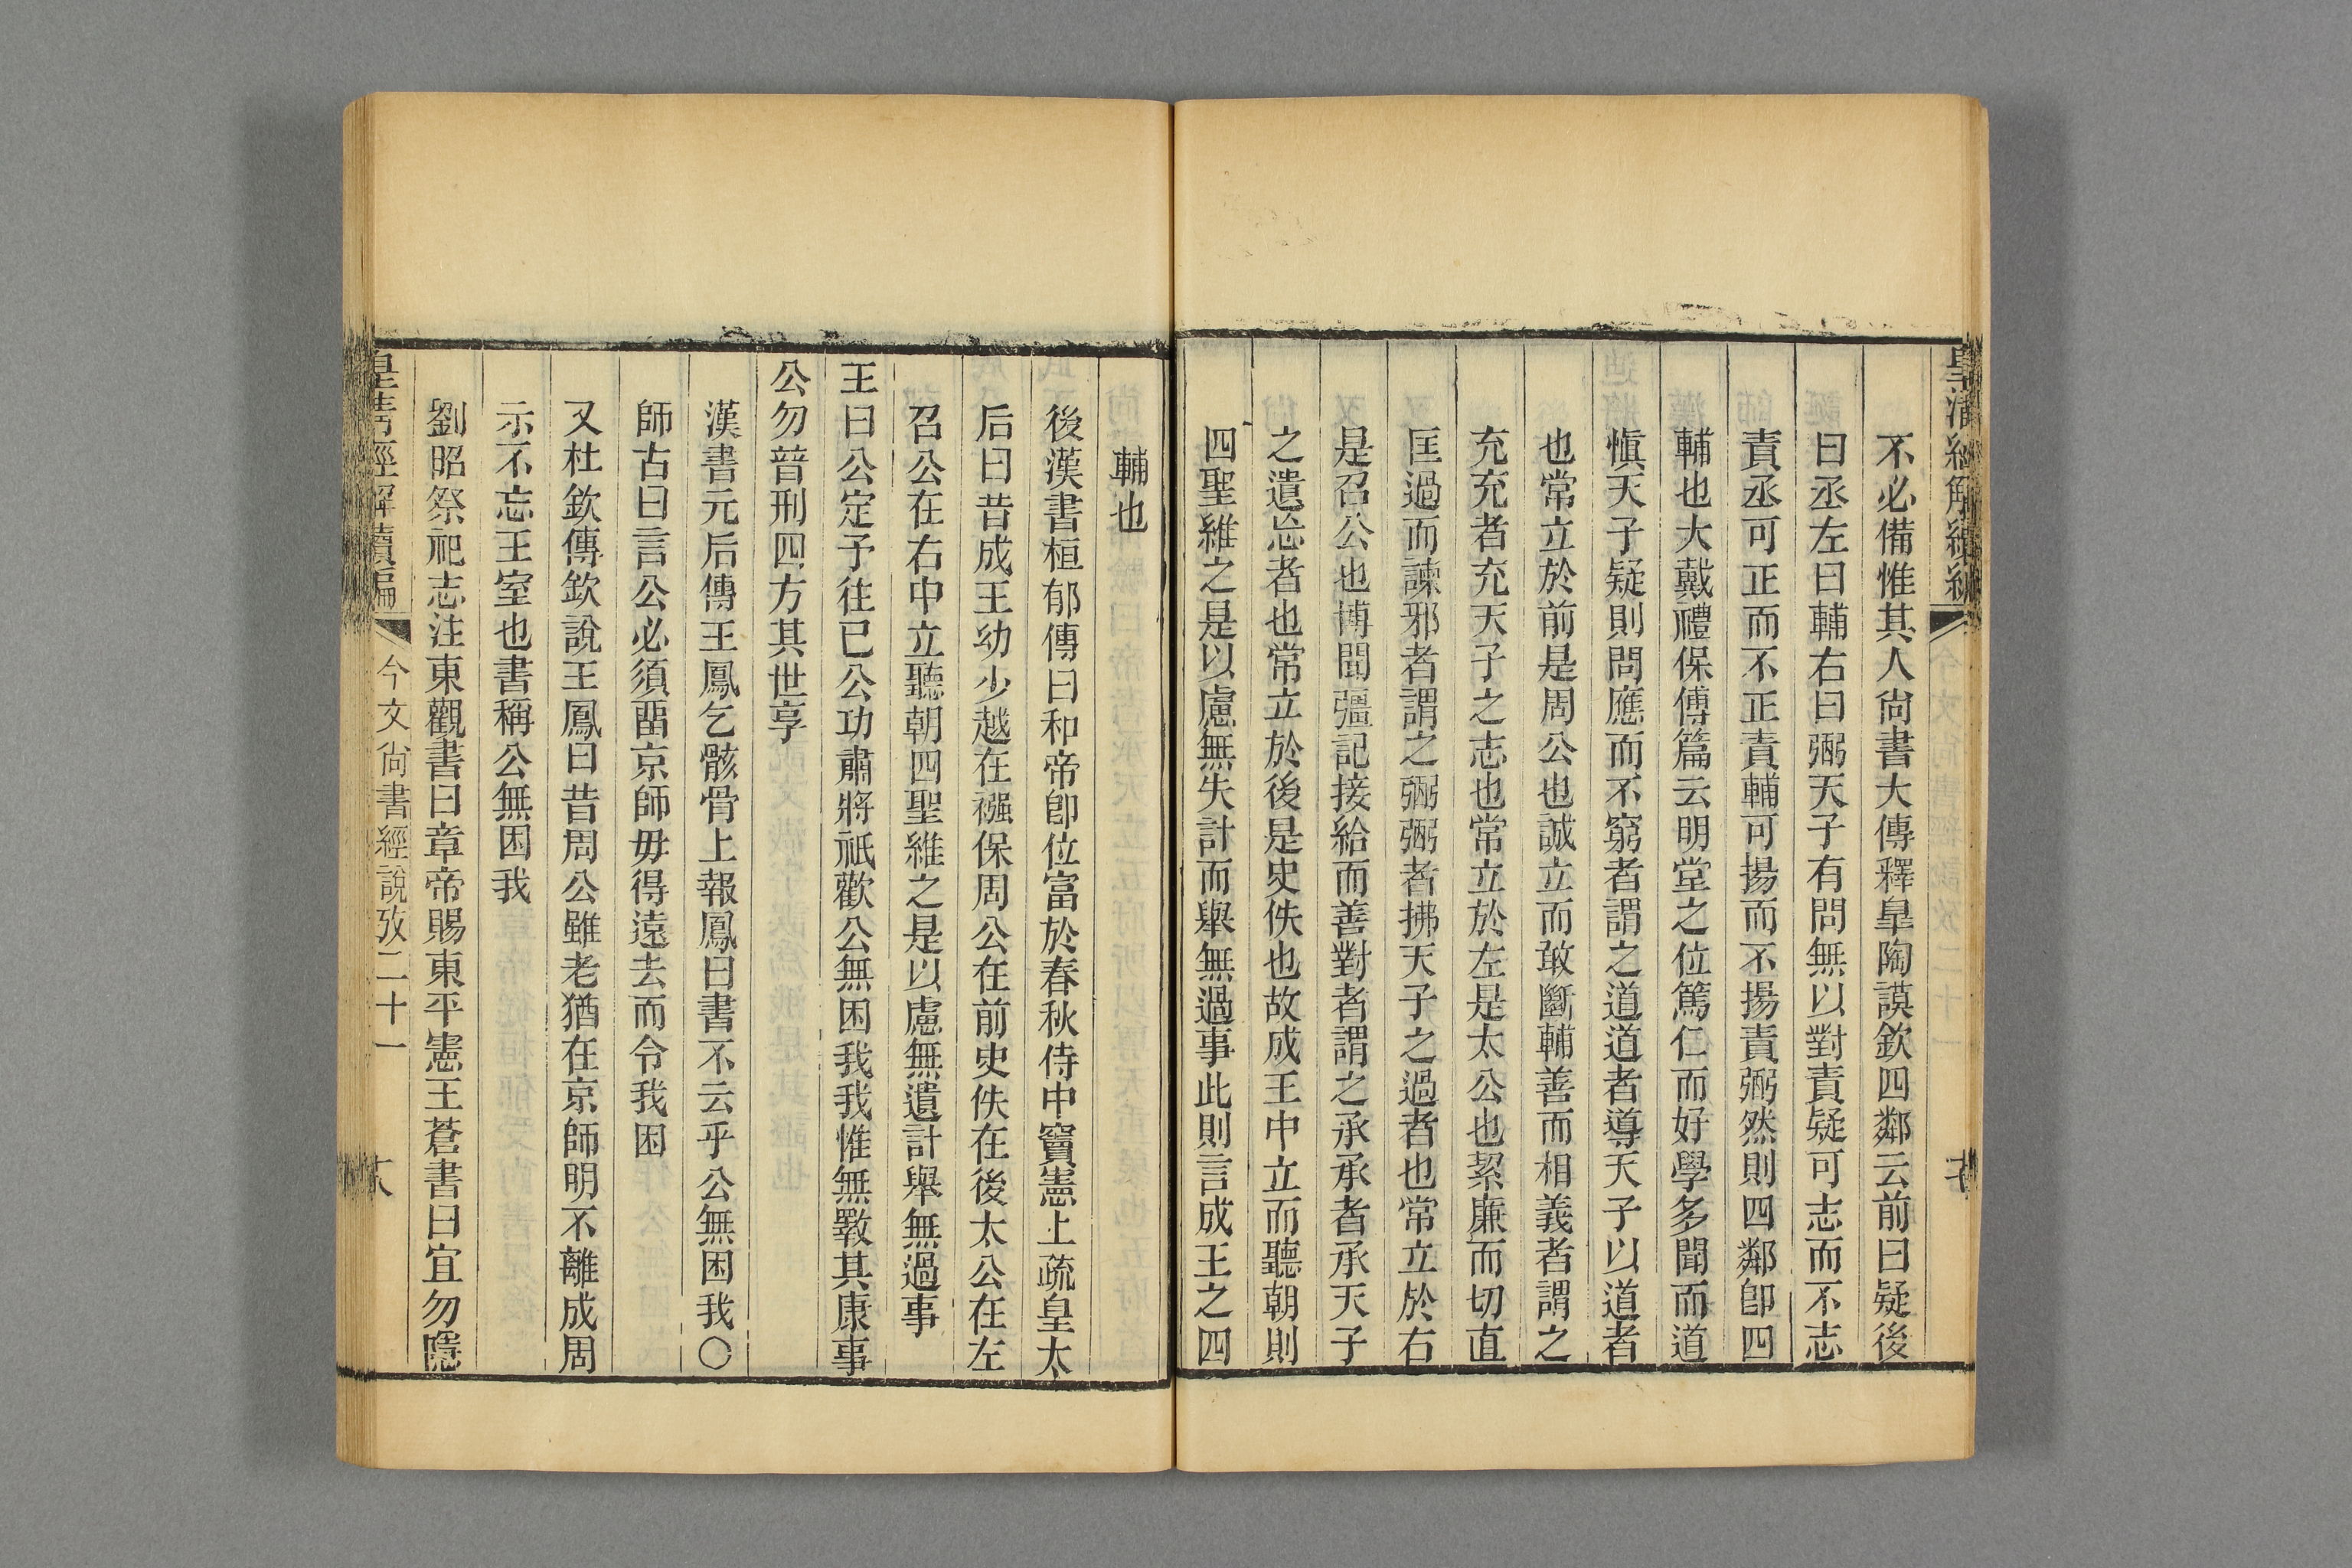 不必備惟其人尙書大傳釋臯陶謨欽四鄰云前曰疑後
曰丞左曰輔右曰弼天子有問無以對責疑可志而不志
責丞可正而不正責輔可揚而不揚責弼然則四鄰卽四
輔也大戴禮保傅篇云明堂之位篤仁而好學多聞而道
愼天子疑則問應而不窮者謂之道道者導天子以道者
也常立於前是周公也誠立而敢斷輔善而相義者謂之
充充者充天子之志也常立於左是太公也絜廉而切直
匡過而諫邪者謂之弼弼者拂天子之過者也常立於右
是召公也博聞彊記接給而善對者謂之承承者承天子
之遺忘者也常立於後是史佚也故成王中立而聽朝則
四聖維之是以慮無失計而舉無過事此則言成王之四
輔也
後漢書桓郁傳曰和帝卽位富於春秋侍中竇憲上疏皇太
后曰昔成王幼少越在襁保周公在前史佚在後太公在左
召公在右中立聽朝四聖維之是以慮無遺計舉無過事
王曰公定予往已公功肅將祇歡公無困我我惟無斁其康事
公勿替刑四方其世享
漢書元后傳王鳳乞骸骨上報鳳曰書不云乎公無困我〇
師古曰言公必須畱京師毋得遠去而令我困
又杜欽傳欽說王鳳曰昔周公雖老猶在京師明不離成周
示不忘王室也書稱公無困我
劉昭祭祀志注東觀書曰章帝賜東平憲王蒼書曰宜勿隱
皇淸經解續編
今文尙書經說攷二十一